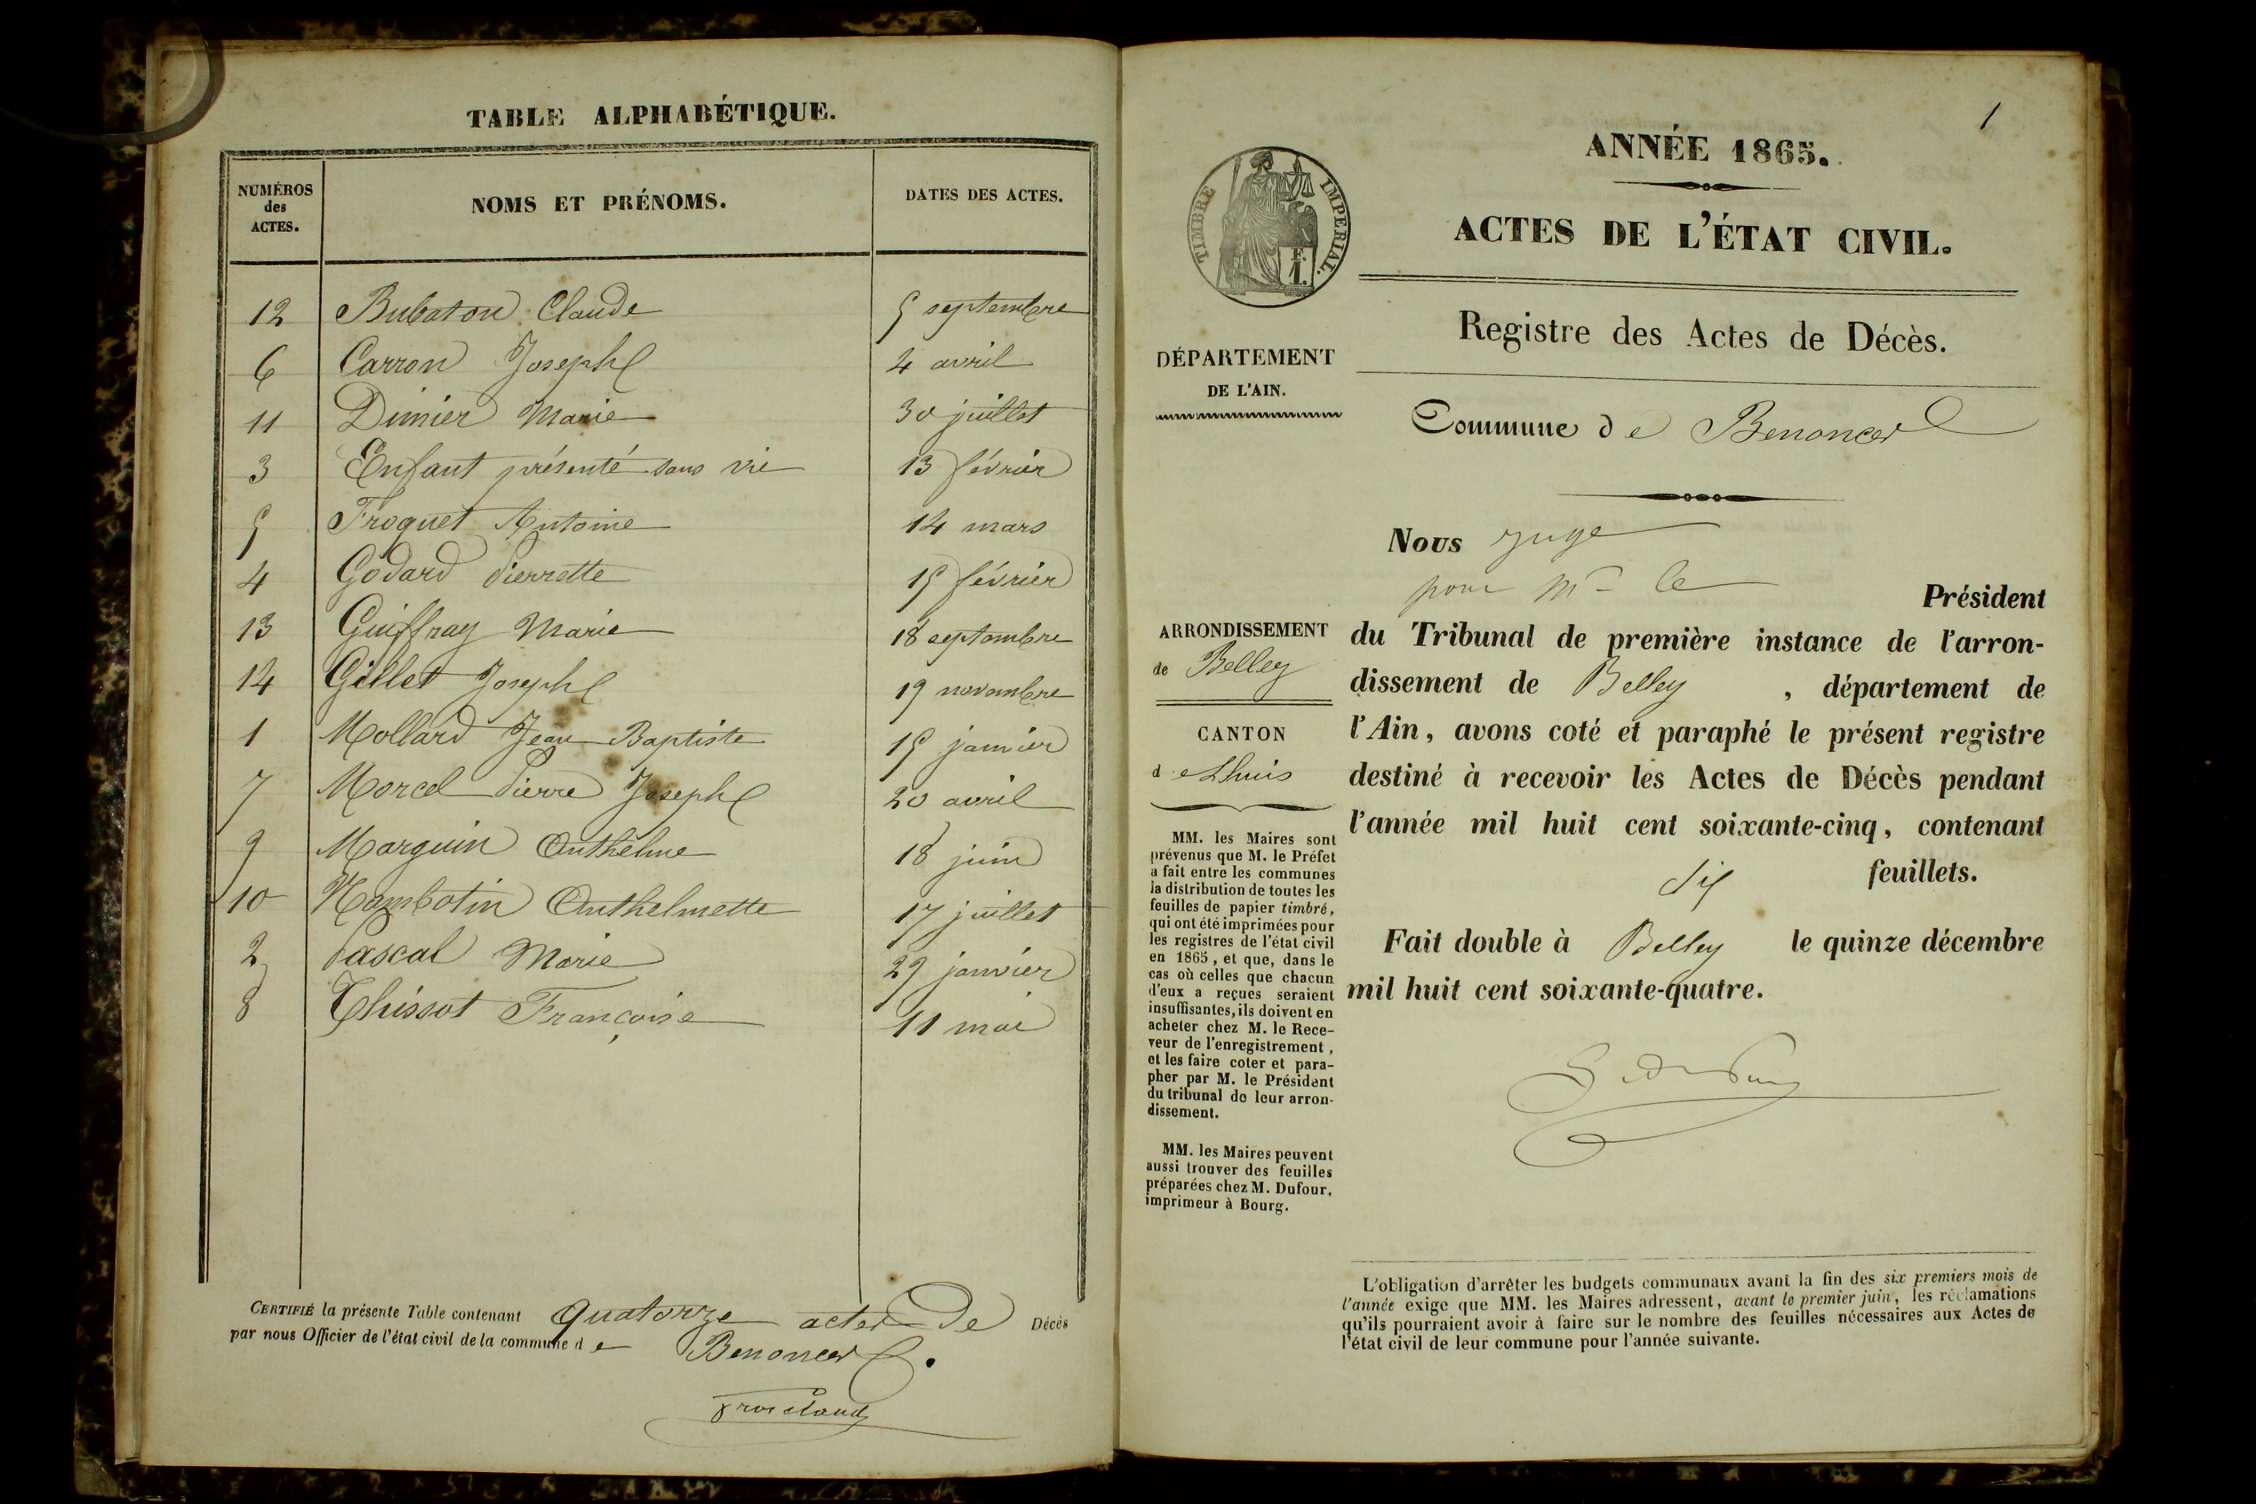 TABLE ALPHABÉTIQUE.
NUMÉROS des ACTES. NOMS ET PRÉNOMS. DATES DES ACTES.
12 Bubaton Claude 5 septembre
6 Carron Joseph 4 avril
11 Dimier Marie 30 juillet
3 Enfant présenté sans vie 13 février
5 Froquet Antoine 14 mars
4 Godard Pierrette 15 février
13 Guiffray Marie 18 septembre
14 Gillet Joseph 19 novembre
1 Mollard Jean Baptiste 15 janvier
7 Morcel Pierre Joseph 20 avril
9 Marguin Anthelme 18 juin
10 Nambotin Anthelmette 17 juillet
2 Pascal Marie 29 janvier
8 Thissot Françoise 11 mai
CERTIFIÉ la présente Table contenant quatorze actes de Décès
par nous Officier de l'état civil de la commune de Benonces.
1
ANNÉE 1865.
TIMBRE IMPERIAL.
F.
1.
ACTES DE L'ÉTAT CIVIL.
Registre des Actes de Décès.
DÉPARTEMENT
DE L'AIN.
Commune de Benonces
Nous juge
pour Mr le
Président
ARRONDISSEMENT
de Belley
CANTON
de Lhuis
MM. les Maires sont
prévenus que M. le Préfet
a fait entre les communes
la distribution de toutes les
feuilles de papier timbré,
qui ont été imprimées pour
les registres de l'état civil
en 1865, et que, dans le
cas où celles que chacun
d'eux a reçues seraient
insuffisantes, ils doivent en
acheter chez M. le Rece-
veur de l'enregistrement,
et les faire coter et para-
pher par M. le Président
du tribunal de leur arron-
dissement.
MM. les Maires peuvent
aussi trouver des feuilles
préparées chez M. Dufour,
imprimeur à Bourg.
du Tribunal de première instance de l'arron-
dissement de Belley, département de
l'Ain, avons coté et paraphé le présent registre
destiné à recevoir les Actes de Décès pendant
l'année mil huit cent soixante-cinq, contenant
six feuillets.
Fait double à Belley le quinze décembre
mil huit cent soixante-quatre.
L'obligation d'arrêter les budgets communaux avant la fin des six premiers mois de
l'année exige que MM. les Maires adressent, avant le premier juin, les réclamations
qu'ils pourraient avoir à faire sur le nombre des feuilles nécessaires aux Actes de
l'état civil de leur commune pour l'année suivante.